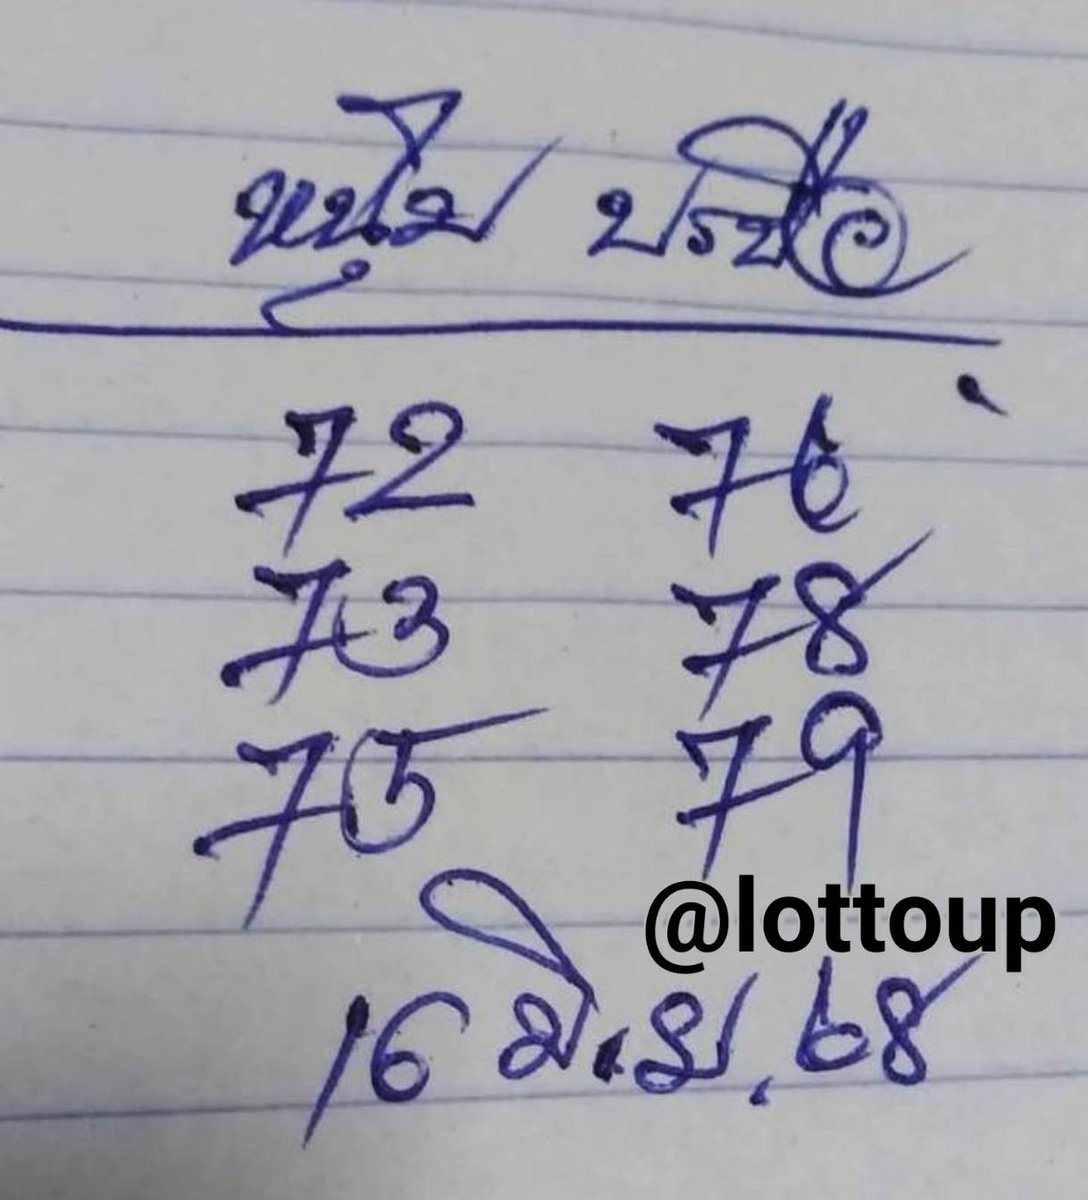 หนุ่ม ประชื่อ
72 76
73 78
75 79
@lottoup
16 มิ.ย. 68